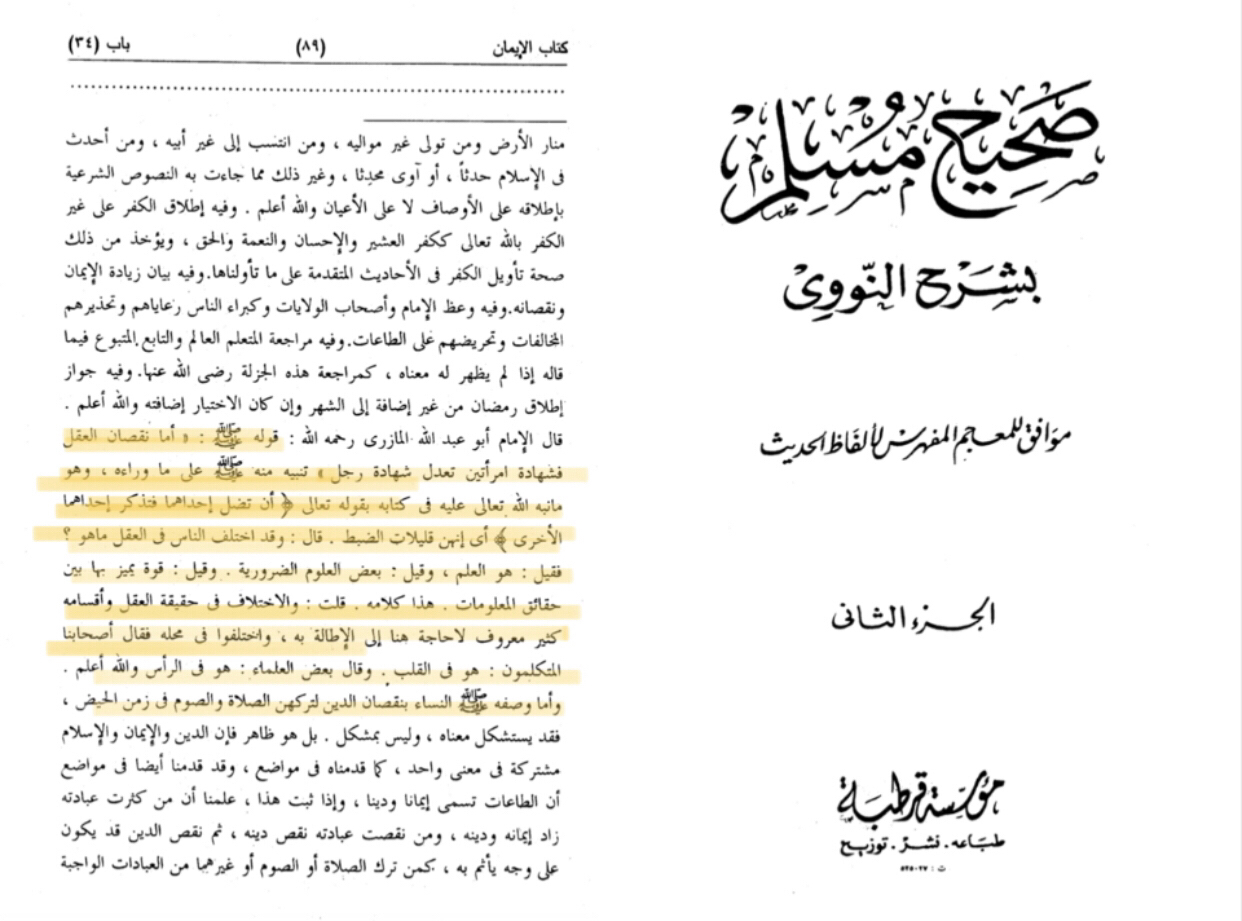 كتاب الإيمان (٨٩) باب (٣٤)
منار الأرض ومن تولى غير مواليه ، ومن انتسب إلى غير أبيه ، ومن أحدث
فى الإسلام حدثاً ، أو آوى محدثا ، وغير ذلك مما جاءت به النصوص الشرعية
بإطلاقه على الأوصاف لا على الأعيان والله أعلم . وفيه إطلاق الكفر على غير
الكفر بالله تعالى ككفر العشير والإحسان والنعمة والحق ، ويؤخذ من ذلك
صحة تأويل الكفر فى الأحاديث المتقدمة على ما تأولناها.وفيه بيان زيادة الإيمان
ونقصانه.وفيه وعظ الإمام وأصحاب الولايات وكبراء الناس رعاياهم وتحذيرهم
المخالفات وتحريضهم على الطاعات.وفيه مراجعة المتعلم العالم والتابع المتبوع فيما
قاله إذا لم يظهر له معناه ، كمراجعة هذه الجزلة رضى الله عنها.وفيه جواز
إطلاق رمضان من غير إضافة إلى الشهر وإن كان الاختيار إضافته والله أعلم .
قال الإمام أبو عبد الله المازرى رحمه الله : قوله ﷺ : « أما نقصان العقل
فشهادة امرأتين تعدل شهادة رجل » تنبيه منه ﷺ على ما وراءه ، وهو
مانبه الله تعالى عليه فى كتابه بقوله تعالى ﴿ أن تضل إحداهما فتذكر إحداهما
الأخرى ﴾ أى إنهن قليلات الضبط . قال : وقد اختلف الناس فى العقل ماهو ؟
فقيل : هو العلم ، وقيل : بعض العلوم الضرورية . وقيل : قوة يميز بها بين
حقائق المعلومات . هذا كلامه . قلت : والاختلاف فى حقيقة العقل وأقسامه
كثير معروف لاحاجة هنا إلى الإطالة به ، واختلفوا فى محله فقال أصحابنا
المتكلمون : هو فى القلب . وقال بعض العلماء : هو فى الرأس والله أعلم .
وأما وصفه ﷺ النساء بنقصان الدين لتركهن الصلاة والصوم فى زمن الحيض ،
فقد يستشكل معناه ، وليس بمشكل . بل هو ظاهر فإن الدين والإيمان والإسلام
مشتركة فى معنى واحد ، كما قدمناه فى مواضع ، وقد قدمنا أيضا فى مواضع
أن الطاعات تسمى إيمانا ودينا ، وإذا ثبت هذا ، علمنا أن من كثرت عبادته
زاد إيمانه ودينه ، ومن نقصت عبادته نقص دينه ، ثم نقص الدين قد يكون
على وجه يأثم به ، كمن ترك الصلاة أو الصوم أو غيرهما من العبادات الواجبة
صَحِيح مُسْلِم
بشَرْح النَّوَوِى
موَافق للمعجم المفهرس لألفَاظ الحديث
الجزء الثانى
مؤسّسة قرطبَة
طبَاعه . نشر . توزيع